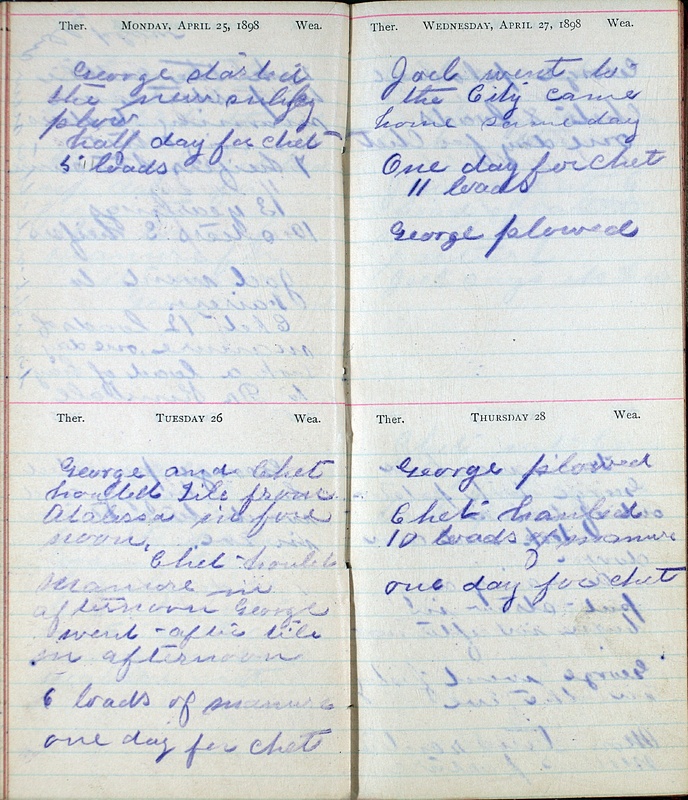 Ther. MONDAY, APRIL 25, 1898 Wea.
George started
the new sulky
plow
half day for chet
5 loads
Ther. TUESDAY 26 Wea.
George and Chet
houlled Tile from
in fore
noon,
Chet houled
manure in
afternoon George
went after tile
in afternoon
6 loads of manure
one day for chet
Ther. WEDNESDAY, APRIL 27, 1898 Wea.
Joel went to
the City came
home same day
One day for chet
11 loads
George plowed
Ther. THURSDAY 28 Wea.
George plowed
Chet hauled
10 loads manure
one day for chet